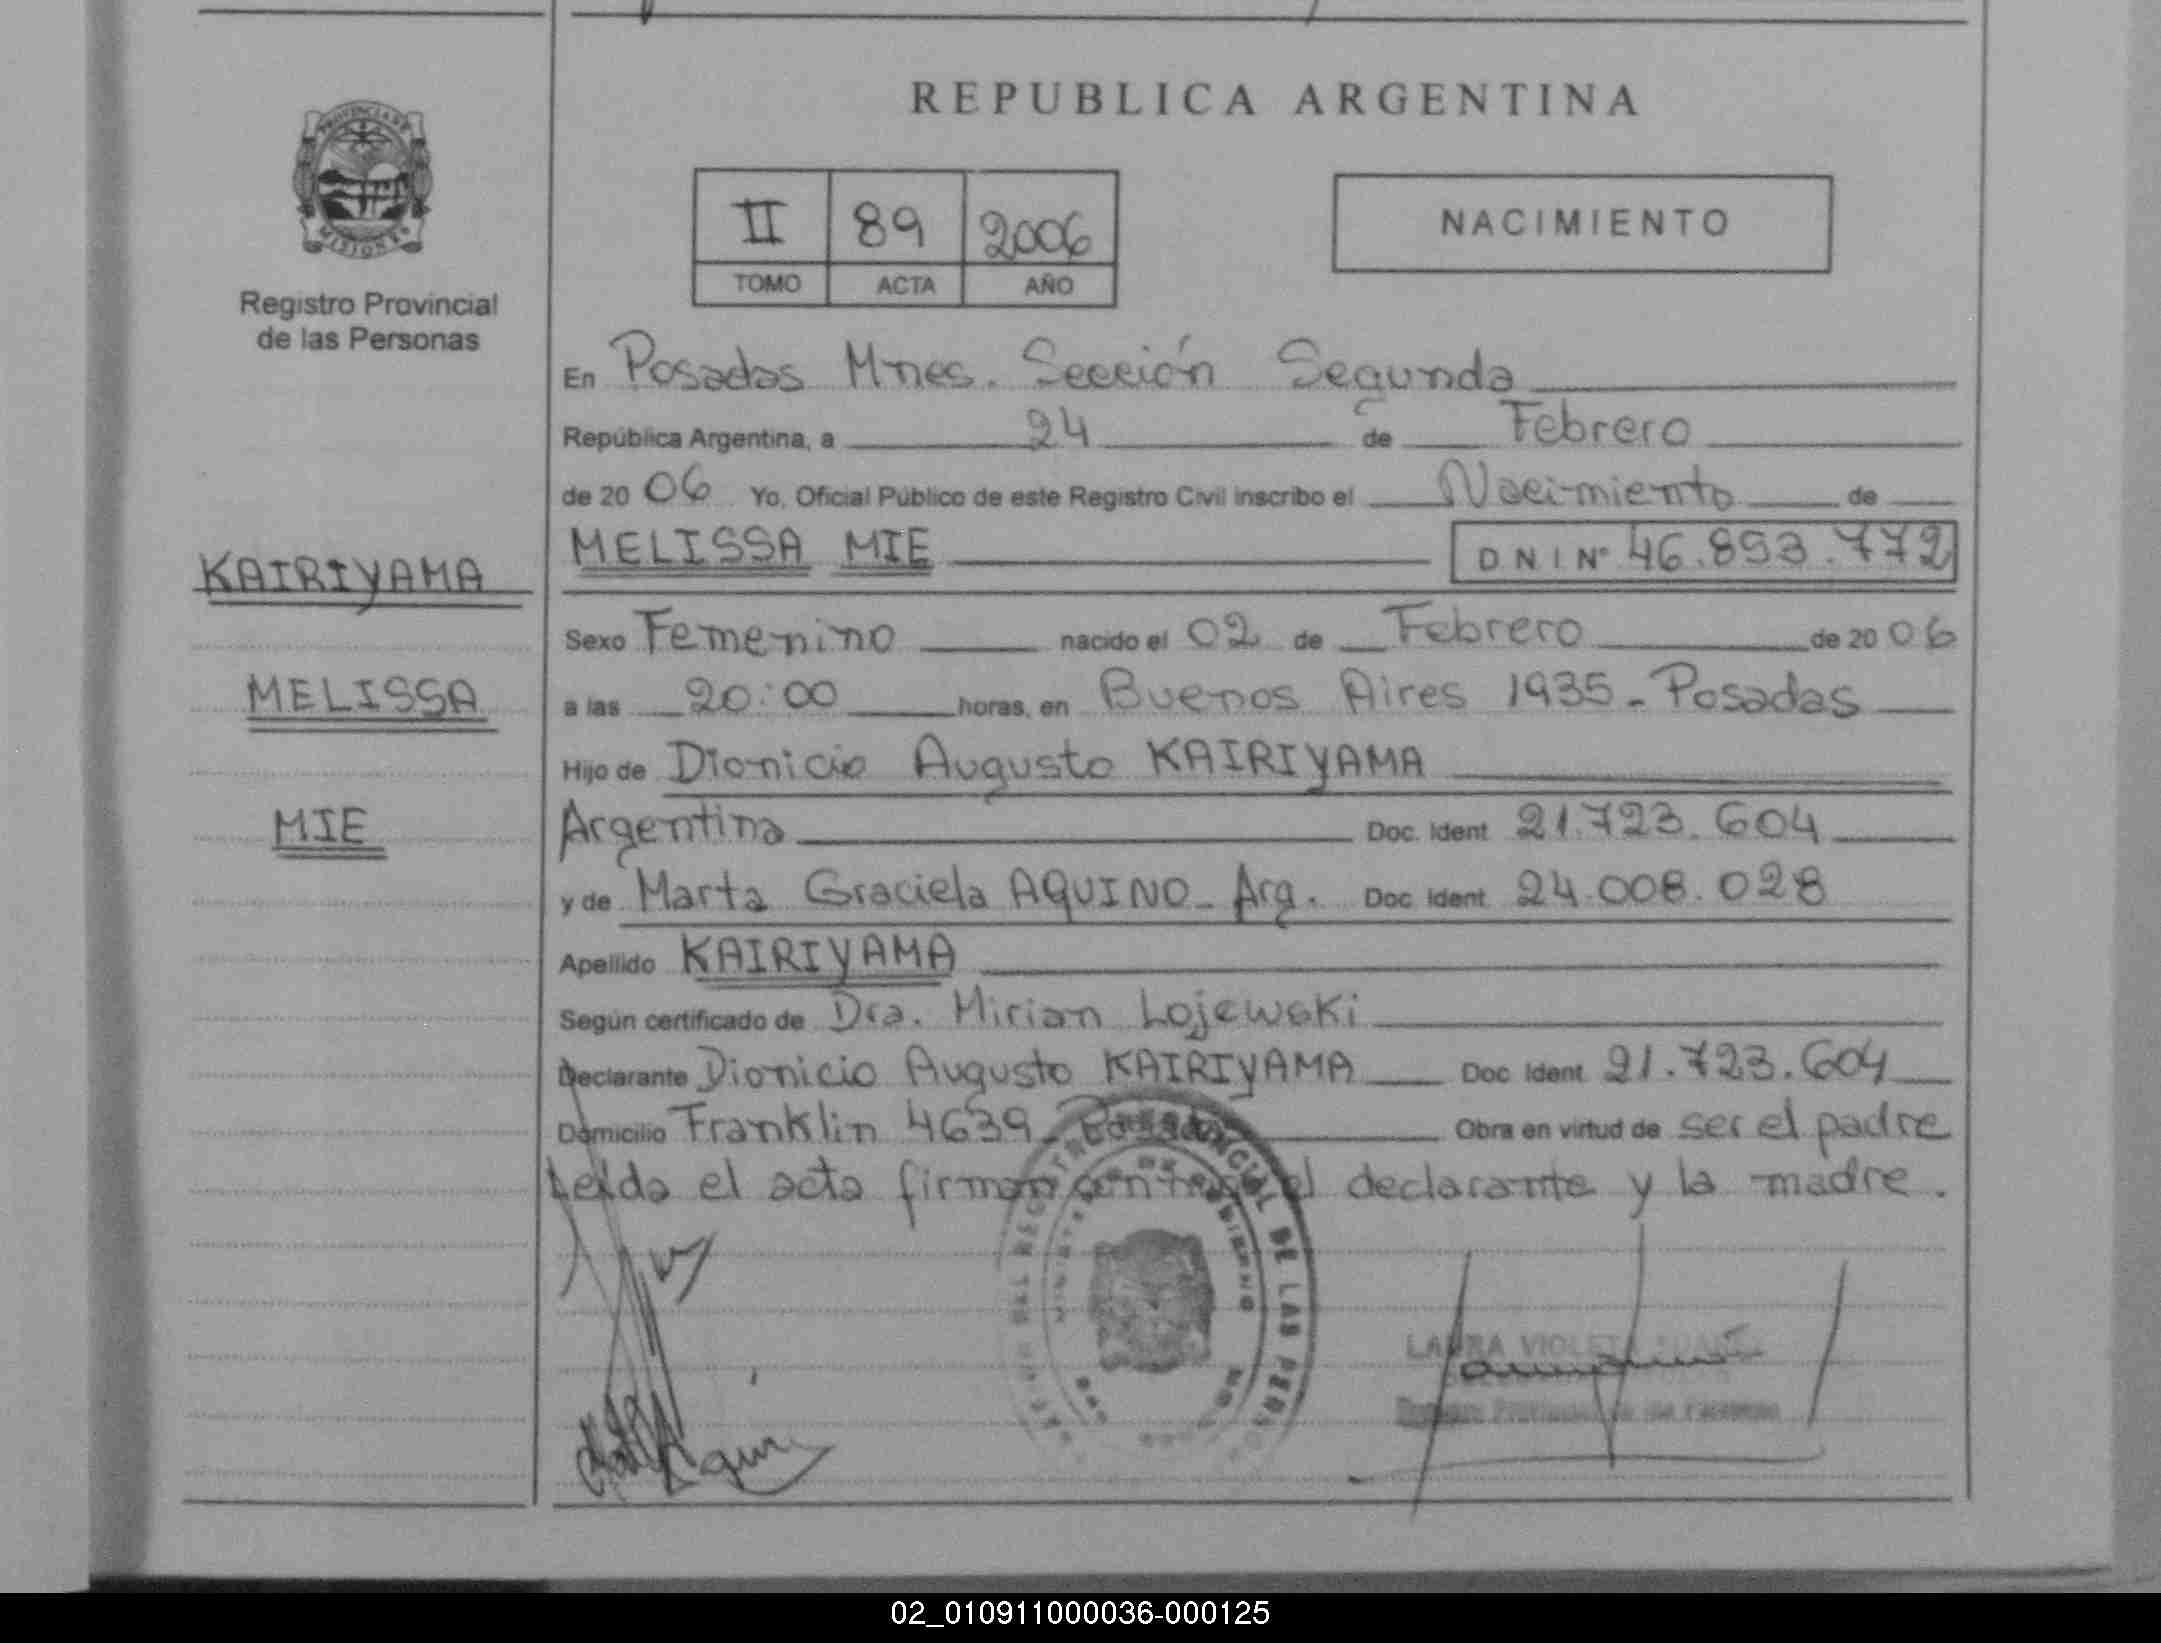 REPUBLICA ARGENTINA
PROVINCIA DE
MISIONES
Registro Provincial
de las Personas
II 89 2006
TOMO ACTA AÑO
NACIMIENTO
En Posadas Mnes. Sección Segunda
República Argentina, a 24 de Febrero
de 20 06 Yo, Oficial Público de este Registro Civil inscribo el Nacimiento de
MELISSA MIE D N I Nº 46.893.772
KAIRIYAMA
MELISSA
MIE
Sexo Femenino nacido el 02 de Febrero de 20 06
a las 20:00 horas, en Buenos Aires 1935 - Posadas
Hijo de Dionicio Augusto KAIRIYAMA
Argentina Doc. Ident 21.723.604
y de Marta Graciela AQUINO - Arg. Doc. Ident. 24.008.028
Apellido KAIRIYAMA
Según certificado de Dra. Mirian Lojewski
Declarante Dionicio Augusto KAIRIYAMA Doc Ident 21.723.604
Domicilio Franklin 4639 - Posadas Obra en virtud de ser el padre
Leída el acta firman el declarante y la madre.
REGISTRO PROVINCIAL DE LAS PERSONAS
MINISTERIO DE GOBIERNO
LAURA VIOLETA
02_010911000036-000125